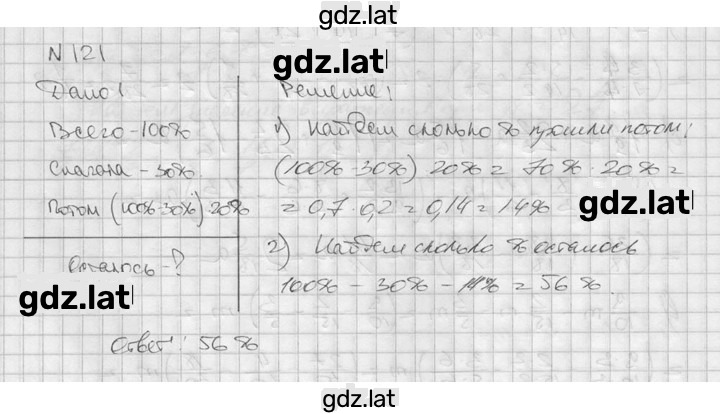 gdz.lat
N 121
gdz.lat
Дано!
Всего - 100%
Сначала - 30%
Потом (100%-30%)·20%
Осталось - ?
gdz.lat
Решение!
1) Найдем сколько % прошли потом!
(100%-30%) 20% = 70%·20% =
= 0,7·0,2 = 0,14 = 14%
gdz.lat
2) Найдем сколько % осталось
100% - 30% - 14% = 56%.
Ответ: 56%
gdz.lat